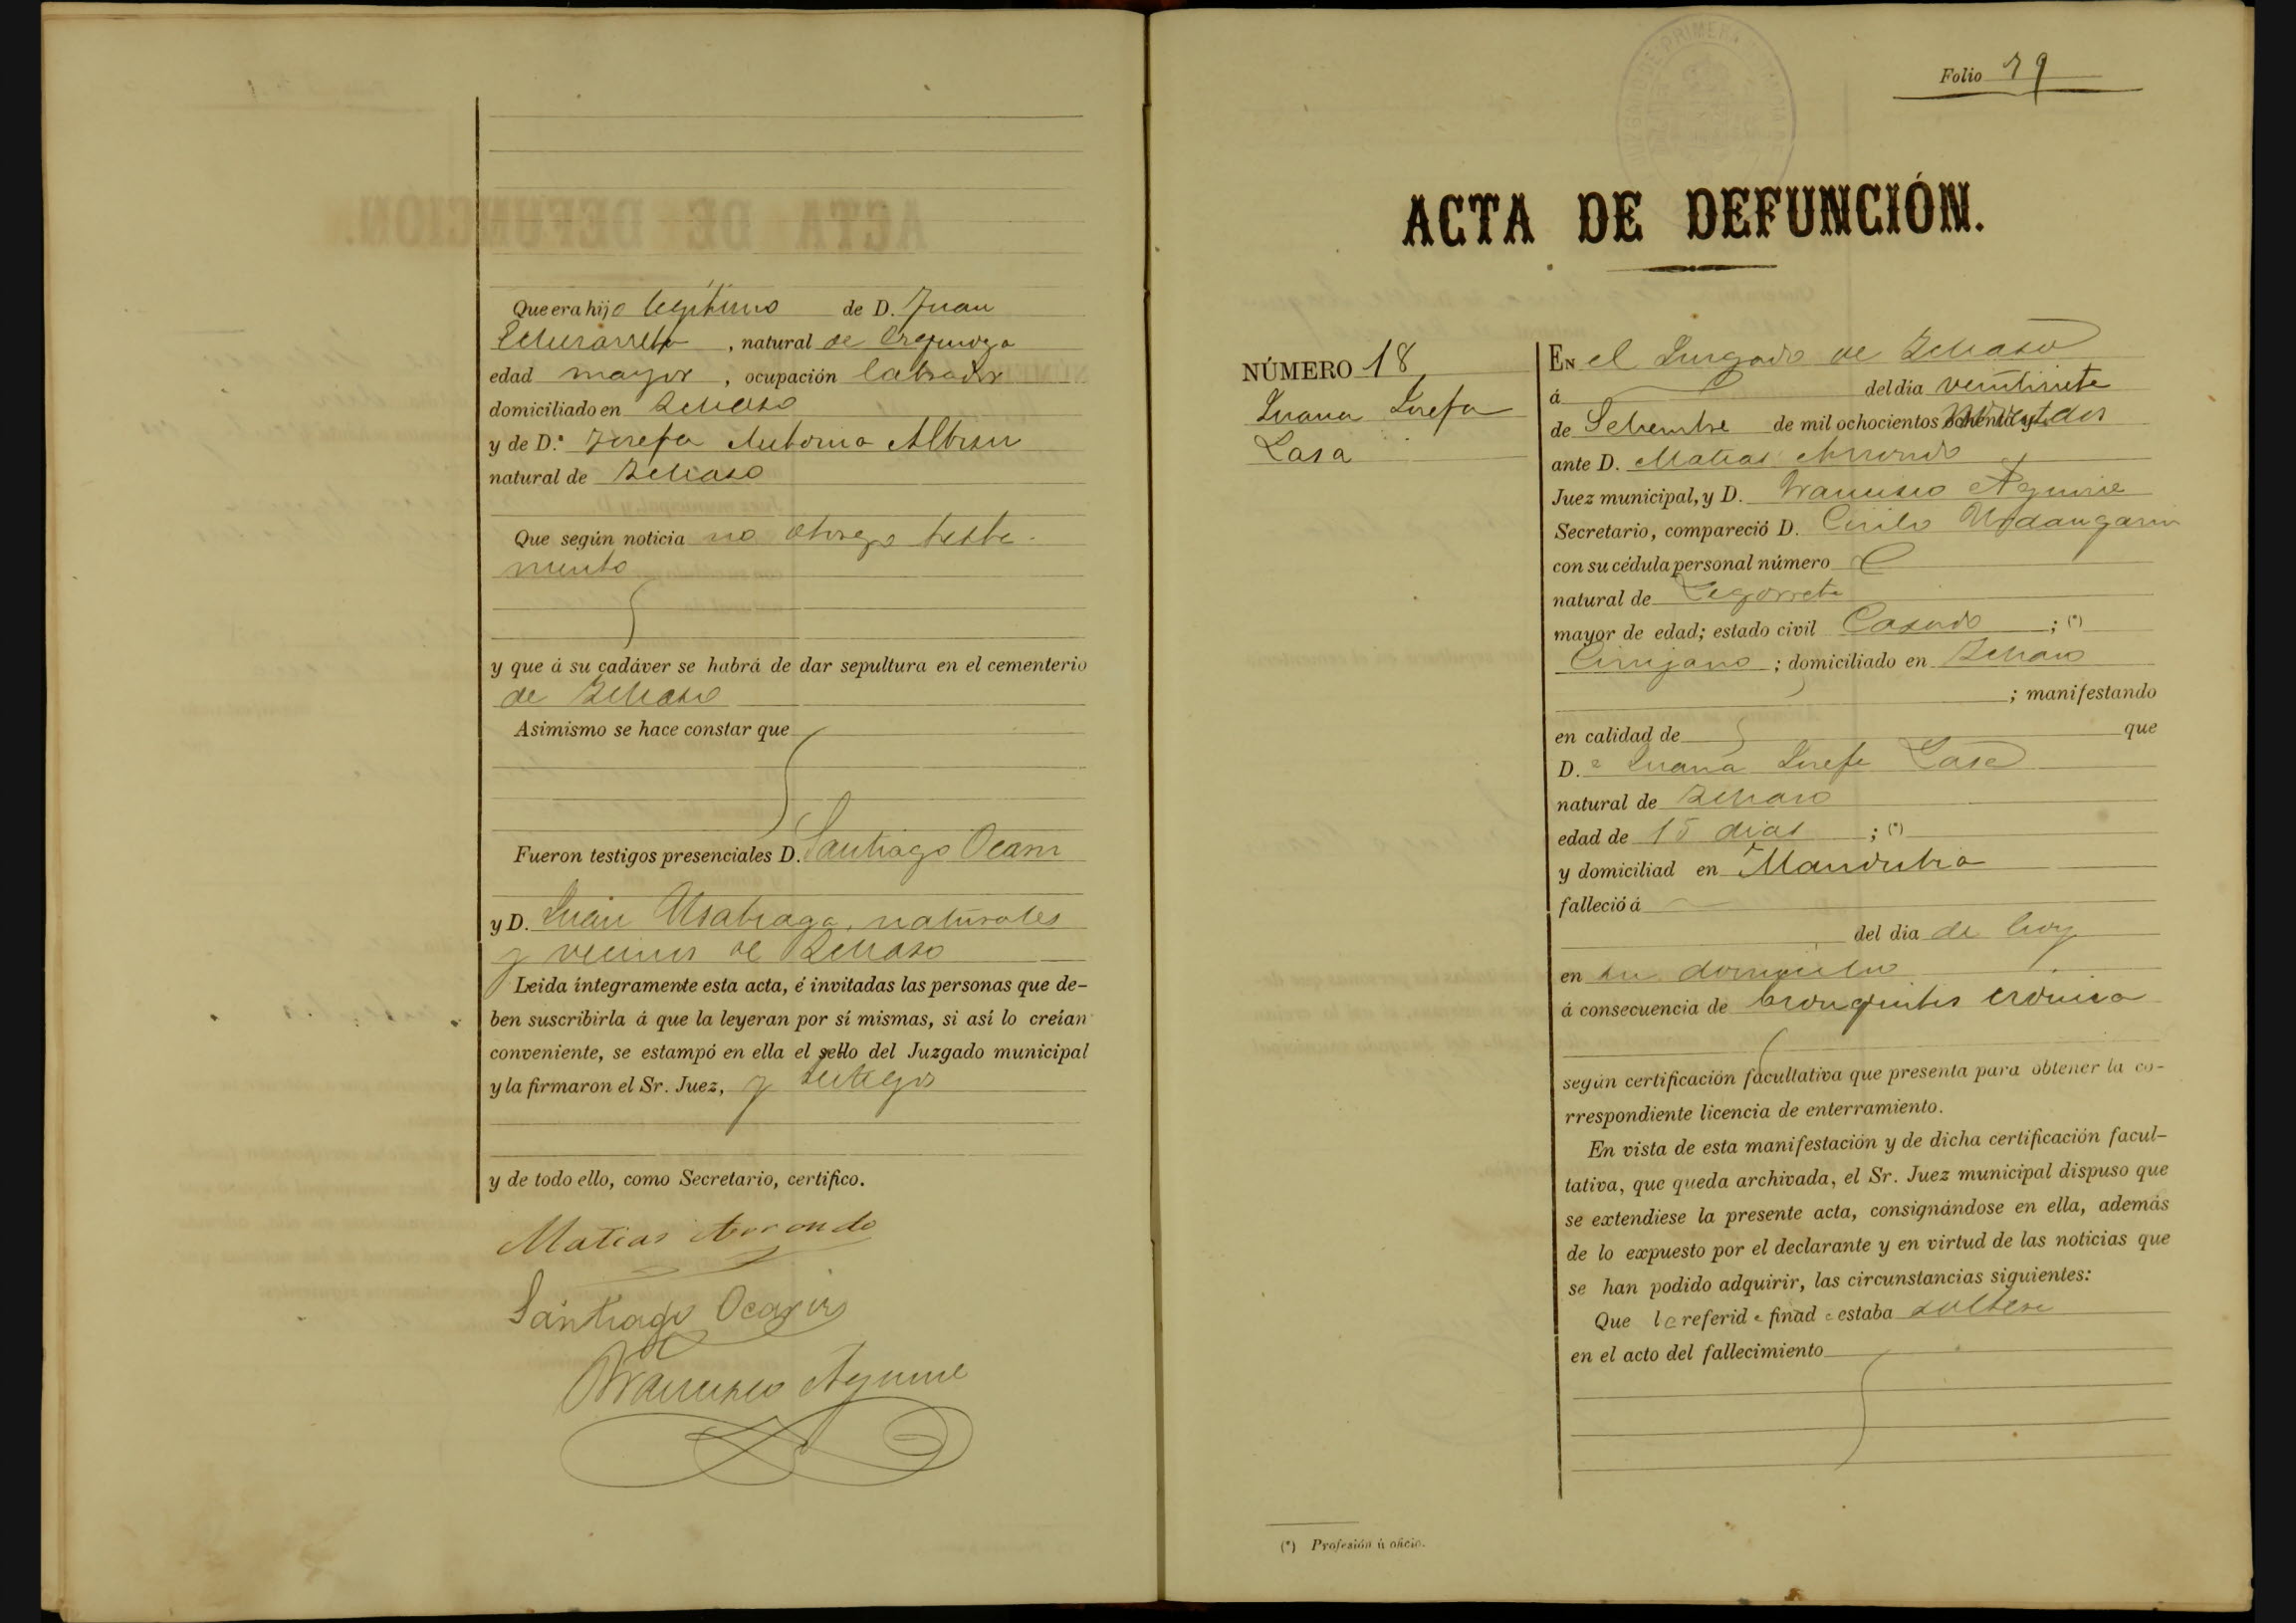 Que era hijo legitimo de D. Juan
Echezarreta, natural de Ezquioga
edad mayor, ocupación labrador
domiciliado en Ichaso
y de D.ª Josefa Antonia Albisu
natural de Ichaso
Que según noticia no otorgo testa-
mento
y que á su cadáver se habrá de dar sepultura en el cementerio
de Ichaso
Asimismo se hace constar que
Fueron testigos presenciales D. Santiago Ocariz
y D. Juan Usabiaga, naturales
y vecinos de Ichaso
Leida íntegramente esta acta, é invitadas las personas que de-
ben suscribirla á que la leyeran por sí mismas, si así lo creían
conveniente, se estampó en ella el sello del Juzgado municipal
y la firmaron el Sr. Juez, y testigos
y de todo ello, como Secretario, certifico.
Matias Arrondo
Santiago Ocariz
Francisco Aguirre
Folio 19
ACTA DE DEFUNCIÓN.
NÚMERO 18
Juana Josefa
Lasa
EN el Juzgado de Ichaso
á del dia veintisiete
de Setiembre de mil ochocientos noventa y dos
ante D. Matias Arrondo
Juez municipal, y D. Francisco Aguirre
Secretario, compareció D. Cirilo Urdangarin
con su cédula personal número
natural de Legorreta
mayor de edad; estado civil Casado ; (*)
Cirujano ; domiciliado en Ichaso
; manifestando
en calidad de que
D.ª Juana Josefa Lasa
natural de Ichaso
edad de 15 dias ; (*)
y domiciliad en Mandubia
falleció á
del dia de hoy
en su domicilio
á consecuencia de bronquitis cronica
según certificación facultativa que presenta para obtener la co-
rrespondiente licencia de enterramiento.
En vista de esta manifestación y de dicha certificación facul-
tativa, que queda archivada, el Sr. Juez municipal dispuso que
se extendiese la presente acta, consignándose en ella, además
de lo expuesto por el declarante y en virtud de las noticias que
se han podido adquirir, las circunstancias siguientes:
Que la referida finada estaba soltera
en el acto del fallecimiento
(*) Profesión ú oficio.